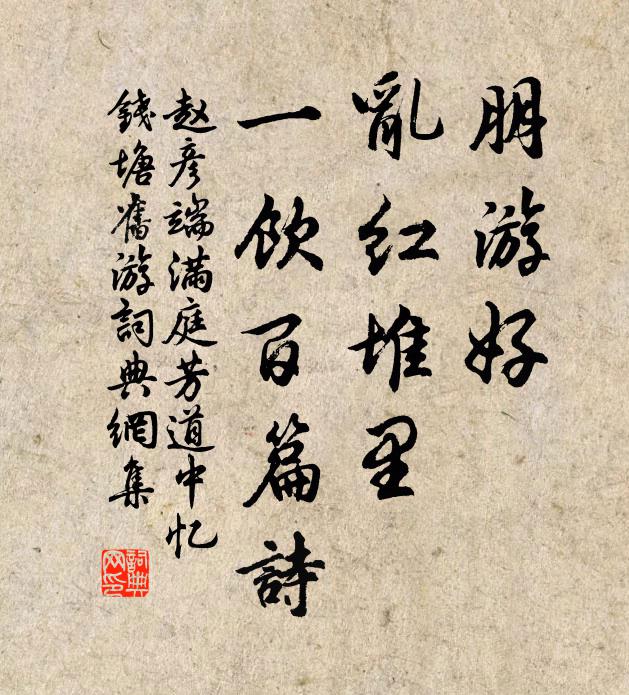 朋游好
亂红堆里
一飲百篇詩
赵彦端满庭芳道中忆
錢塘舊游詞典網集
詞典网印